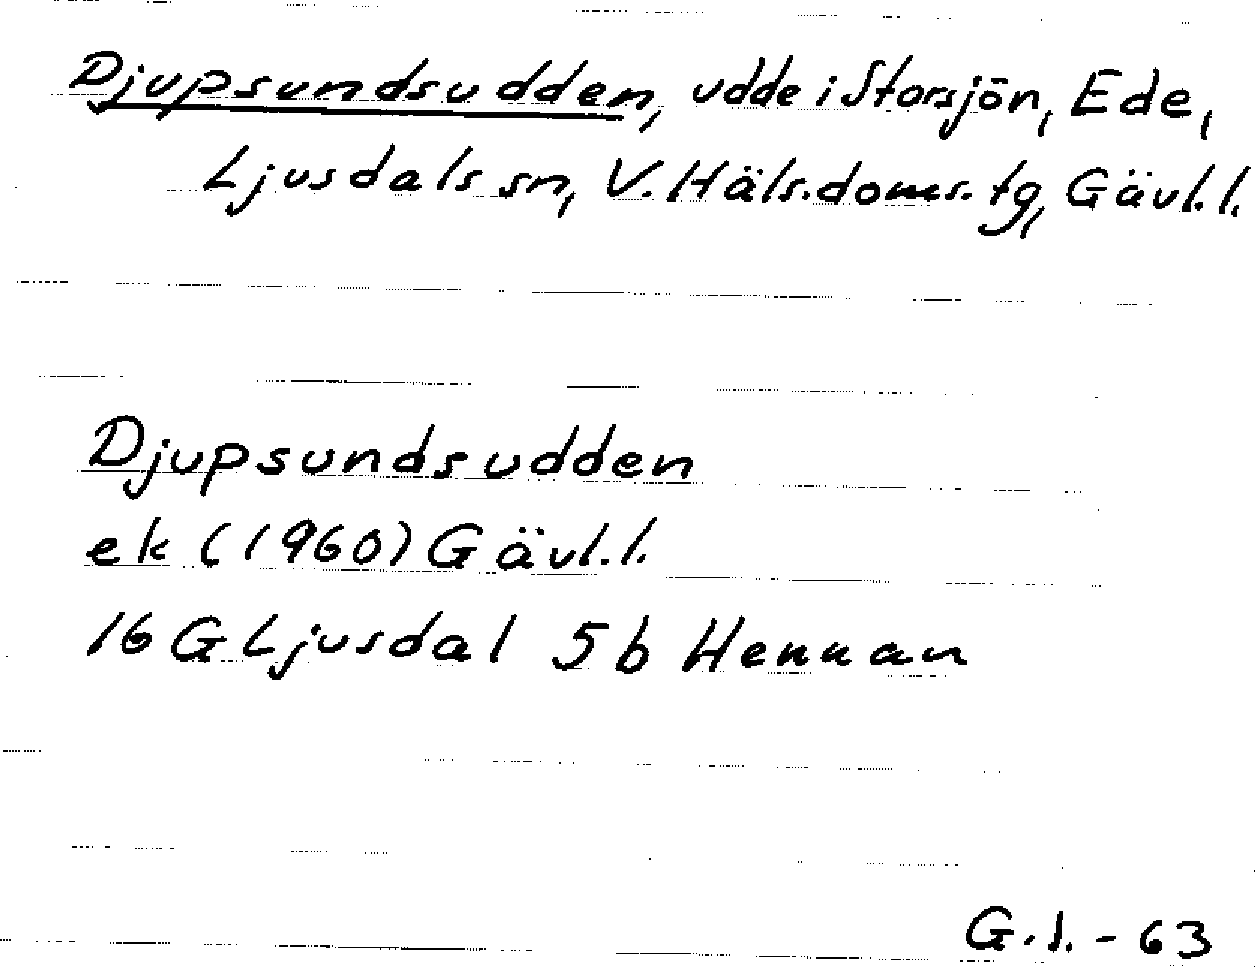 Djupsundsudden, udde i Storsjön, Ede,
Ljusdals sn, V. Häls. doms. tg, Gävl. l.
Djupsundsudden
ek (1960) Gävl. l.
16 G Ljusdal 5 b Hennan
G. l. - 63